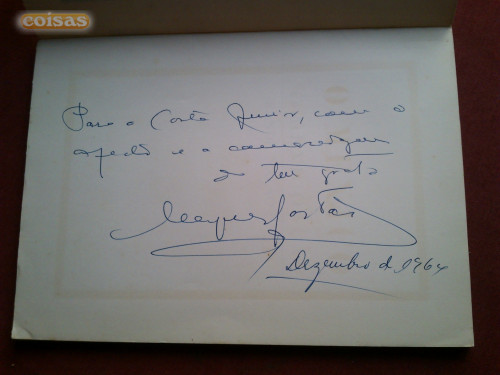 coisas
Para o Costa Junior, com o
afecto e a camaradagem
do teu grato
Dezembro de 1964